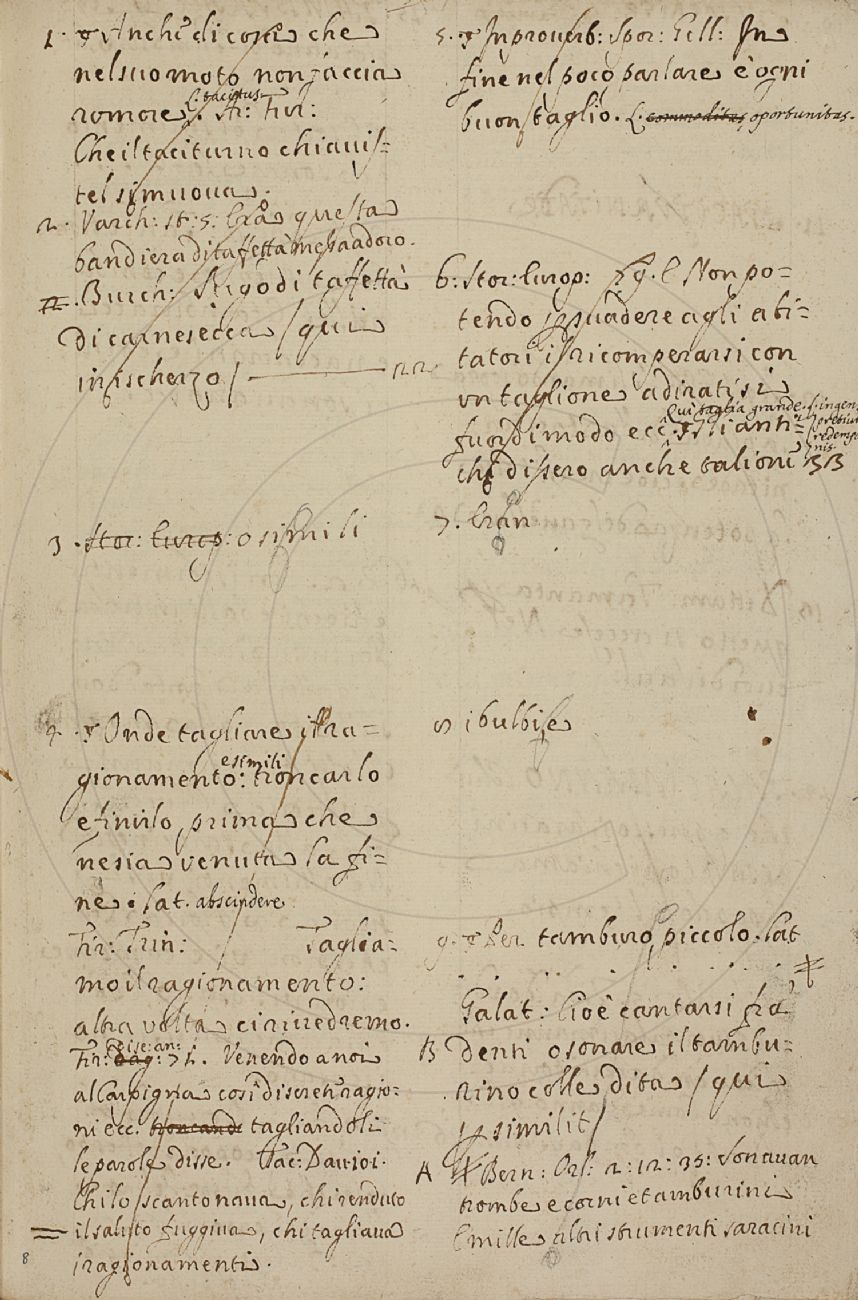 1. Anche di cose che
nel suo moto non faccia
L. tacitus
romore. Str: Fir:
Che il taciturno chiavis=
tel si muova.
2. Varch: st: 5: Era questa
bandiera di taffettà messa a doro.
Burch: Arigo di taffettà
di carnesecca / qui
in ischerzo /
3. Stor: Europ: o simili
4. Onde tagliare il ra=
esimili
gionamento: troncarlo
e finirlo prima che
ne sia venuta la fi=
ne. Lat. abscindere
Fir: Trin: Taglia=
mo il ragionamento:
altra volta ci rivedremo.
Fir: dag: 71. Venendo a noi
al Carpigna così discreti ragio=
ni ecc. troncando tagliandoli
le parole disse. Tac: Dav:
Chi lo scantonava, chi renduto
il saluto fuggiva, chi tagliava
i ragionamenti.
8
5. In proverb: Spor: Gell: In
fine nel poco parlare è ogni
buon taglio. L. commoditas oportunitas.
6. Stor: Europ: E Non po=
tendo persuadere agli abi=
tatori il ricomperarsi con
un taglione adiratisi
Qui taglia grande. L. ingens pretium redemptionis.
fuor di modo ecc. Gli anti=
chi dissero anche talione B B
7. Eran
8 i bulbi
9. Per tamburo piccolo. Lat
Galat: Cioè cantarsi fra
B denti o sonare il tambu=
rino colle dita / qui
per similit /
A Bern: Orl: 2: 12: 35: Sonavan
trombe e corni e tamburini
E mille altri strumenti saracini